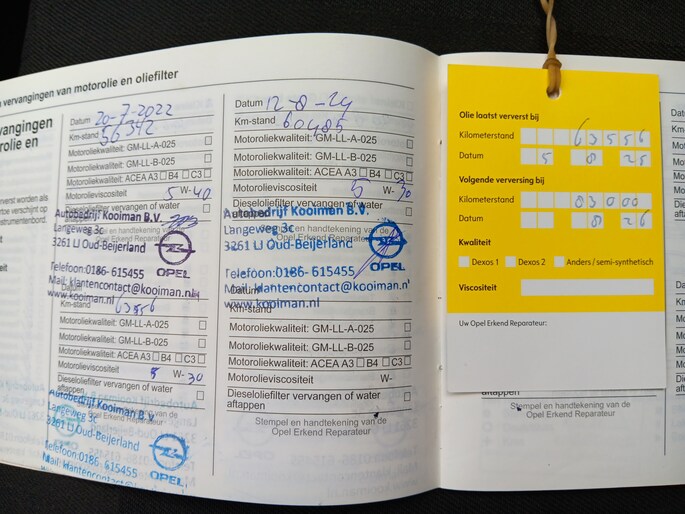 vervangingen van motorolie en oliefilter
vangingen
rolie en
Datum 20-7-2022
Km-stand 56342
Motoroliekwaliteit: GM-LL-A-025
Motoroliekwaliteit: GM-LL-B-025
Motoroliekwaliteit: ACEA A3 B4 C3
Motorolieviscositeit 5 W-40
Dieseloliefilter vervangen of water
Autobedrijf Kooiman B.V.
Langeweg 3c
3261 LJ Oud-Beijerland
OPEL
Telefoon:0186- 615455
Mail: klantencontact@kooiman.nl
www.kooiman.nl
Km-stand
Motoroliekwaliteit: GM-LL-A-025
Motoroliekwaliteit: GM-LL-B-025
Motoroliekwaliteit: ACEA A3 B4 C3
Motorolieviscositeit 5 W-30
Dieseloliefilter vervangen of water
aftappen
Autobedrijf Kooiman B.V.
Langeweg 3c
3261 LJ Oud-Beijerland
Opel Erkend Reparateur
Telefoon:0186- 615455
OPEL
Mail: klantencontact@
Datum 12-8-24
Km-stand 60485
Motoroliekwaliteit: GM-LL-A-025
Motoroliekwaliteit: GM-LL-B-025
Motoroliekwaliteit: ACEA A3 B4 C3
Motorolieviscositeit 5 W-30
Dieseloliefilter vervangen of water
Autobedrijf Kooiman B.V.
Langeweg 3c
3261 LJ Oud-Beijerland
OPEL
Telefoon:0186- 615455
Mail: klantencontact@kooiman.nl
www.kooiman.nl
Datum
Km-stand
Motoroliekwaliteit: GM-LL-A-025
Motoroliekwaliteit: GM-LL-B-025
Motoroliekwaliteit: ACEA A3 B4 C3
Motorolieviscositeit W-
Dieseloliefilter vervangen of water
aftappen
Stempel en handtekening van de
Opel Erkend Reparateur
Olie laatst ververst bij
Kilometerstand 63556
Datum 5 8 25
Volgende verversing bij
Kilometerstand 83000
Datum 8 26
Kwaliteit
Dexos 1 Dexos 2 Anders / semi-synthetisch
Viscositeit
Uw Opel Erkend Reparateur:
Stempel en handtekening van de
Opel Erkend Reparateur